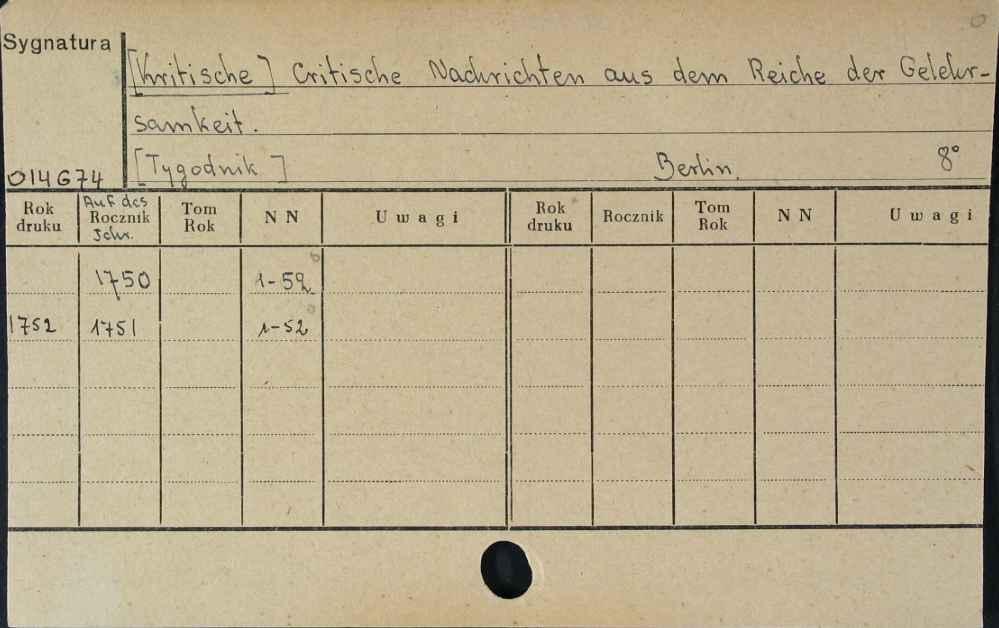 Sygnatura
[Kritische] Critische Nachrichten aus dem Reiche der Gelehr-
samkeit.
014674 [Tygodnik] Berlin. 8°
Rok druku Auf das Rocznik Jahr. Tom Rok NN Uwagi Rok druku Rocznik Tom Rok NN Uwagi
1750 1-52
1752 1751 1-52